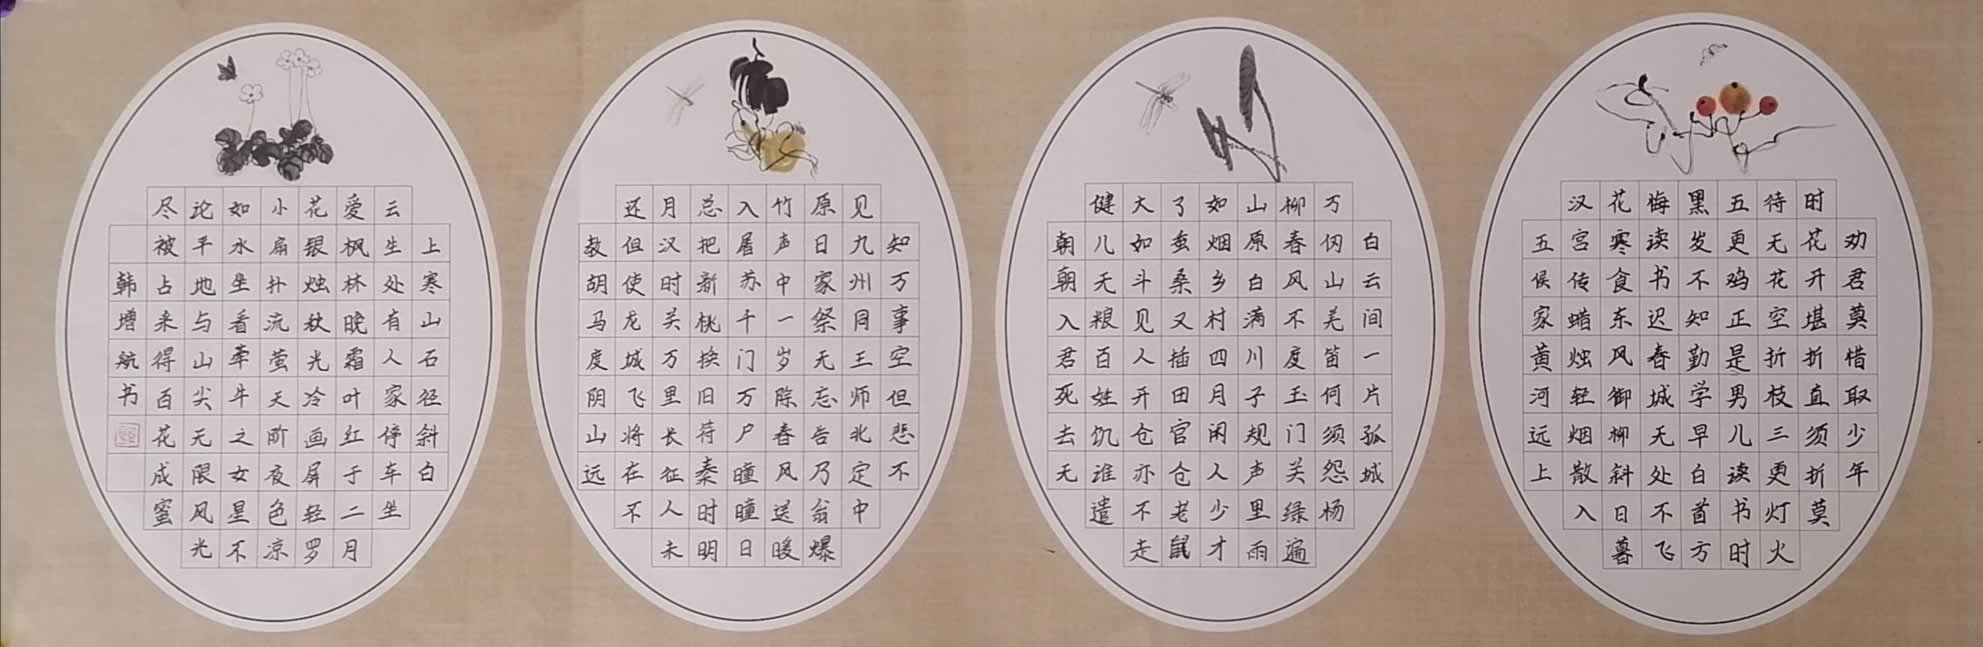 劝君莫惜取少年
时花开堪折直须折莫
待无花空折枝三更灯火
五更鸡正是男儿读书时
黑发不知勤学早白首方
梅读书迟春城无处不飞
花寒食东风御柳斜日暮
汉宫传蜡烛轻烟散入
五侯家黄河远上
白云间一片孤城
万仞山羌笛何须怨杨
柳春风不度玉门关绿遍
山原白满川子规声里雨
如烟乡村四月闲人少才
了蚕桑又插田官仓老鼠
大如斗见人开仓亦不走
健儿无粮百姓饥谁遣
朝朝入君死去无
知万事空但悲不
见九州同王师北定中
原日家祭无忘告乃翁爆
竹声中一岁除春风送暖
入屠苏千门万户曈曈日
总把新桃换旧符秦时明
月汉时关万里长征人未
还但使龙城飞将在不
教胡马度阴山远
上寒山石径斜白
云生处有人家停车坐
爱枫林晚霜叶红于二月
花银烛秋光冷画屏轻罗
小扇扑流萤天阶夜色凉
如水坐看牵牛之女星不
论平地与山尖无限风光
尽被占来得百花成蜜
韩增航书